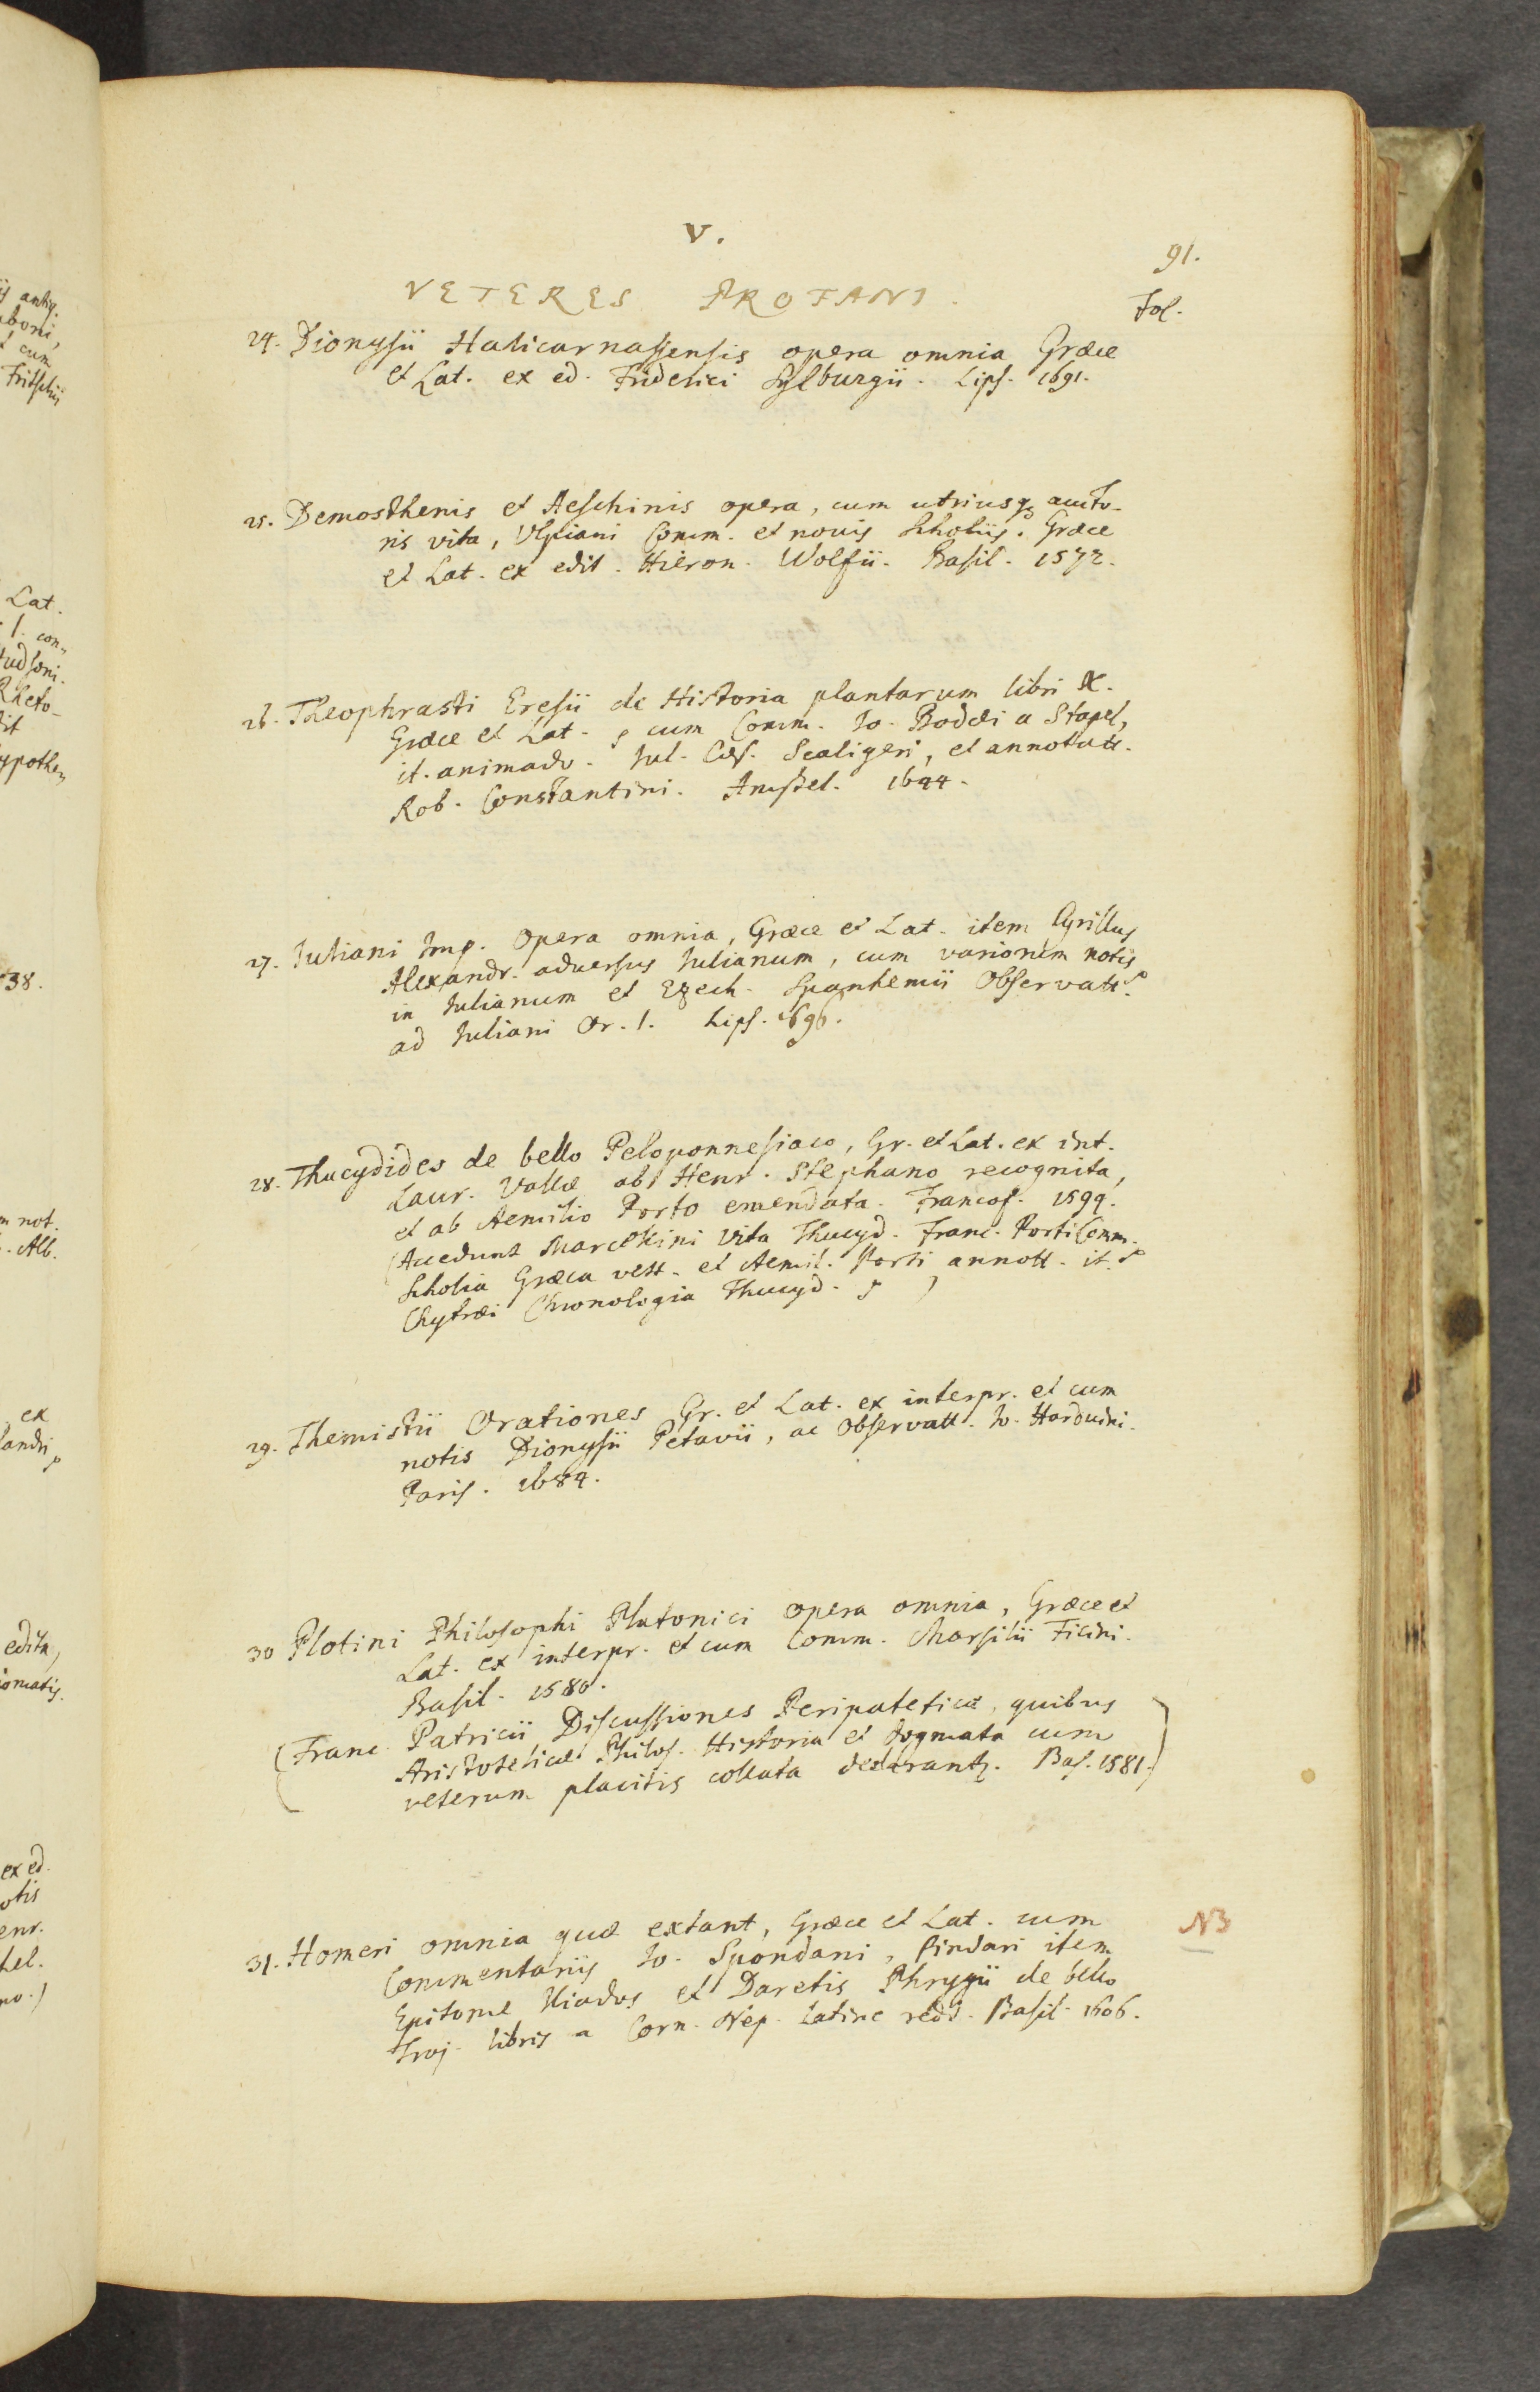 V.
91.
VETERES PROFANI.
Fol.
24. Dionysii Halicarnassensis opera omnia Græce
et Lat. ex ed. Friderici Sylburgii. Lips. 1691.
25. Demosthenis et Aeschinis opera, cum utriusq; aucto-
ris vita, Ulpiani Comm. et novis Scholiis. Græce
et Lat. ex edit. Hieron. Wolfii. Basil. 1572.
26. Theophrasti Eresii de Historia plantarum libri X.
Græce et Lat. cum Comm. Io. Bodæi a Stapel,
it. animadv. Iul. Cæs. Scaligeri, et annotatt.
Rob. Constantini. Amstel. 1644.
27. Iuliani Imp. opera omnia, Græce et Lat. item Cyrillus
Alexandr. adversus Iulianum, cum variorum notis
in Iulianum et Ezech. Spanhemii Observatt.
ad Iuliani Or. I. Lips. 1696.
28. Thucydides de bello Peloponnesiaco, Gr. et Lat. ex int.
Laur. Vallæ ab Henr. Stephano recognita,
et ab Aemilio Porto emendata. Francof. 1594.
(Accedunt Marcellini vita Thucyd. Franc. Porti Comm.
Scholia Græca vett. et Aemil. Porti annott. it.
Chytræi Chronologia Thucyd. )
29. Themistii Orationes Gr. et Lat. ex interpr. et cum
notis Dionysii Petavii, ac Observatt. Io. Harduini.
Paris. 1684.
30 Plotini Philosophi Platonici opera omnia, Græce et
Lat. ex interpr. et cum Comm. Marsilii Ficini.
Basil. 1580.
(Franc. Patricii Discussiones Peripateticæ, quibus
Aristotelicæ Philos. Historia et dogmata cum
veterum placitis collata declarantz. Bas. 1581.)
31. Homeri omnia quæ extant, Græce et Lat. cum
Commentariis Io. Spondani, Pindari item
Epitome Iliados et Daretis Phrygii de bello
Troj. libris a Corn. Nep. Latine redd. Basil. 1606.
NB